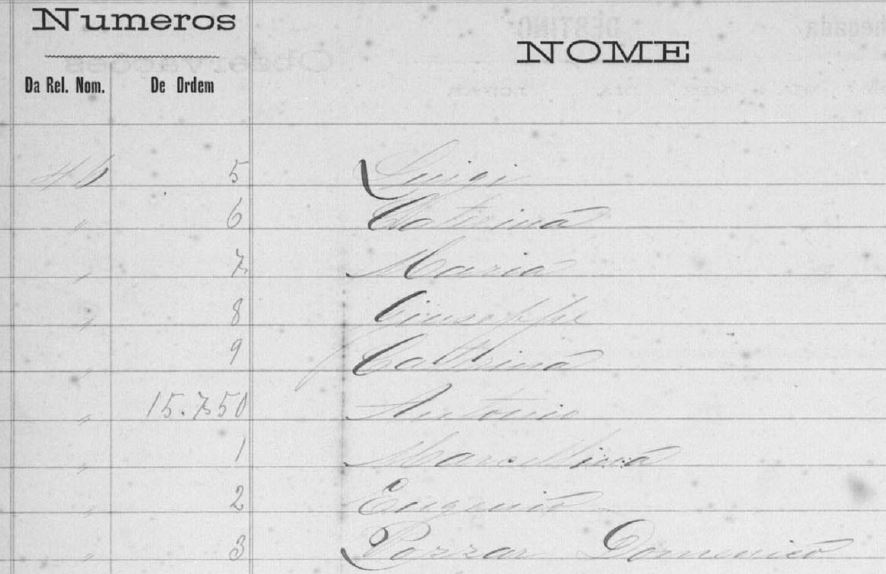 Numeros
NOME
Da Rel. Nom. De Ordem
46 5 Luigi
" 6 Catterina
" 7 Maria
" 8 Giuseppe
" 9 Catterina
" 15.750 Antonio
" 1 Marcellina
" 2 Eugenio
" 3 Pozzar Domenico